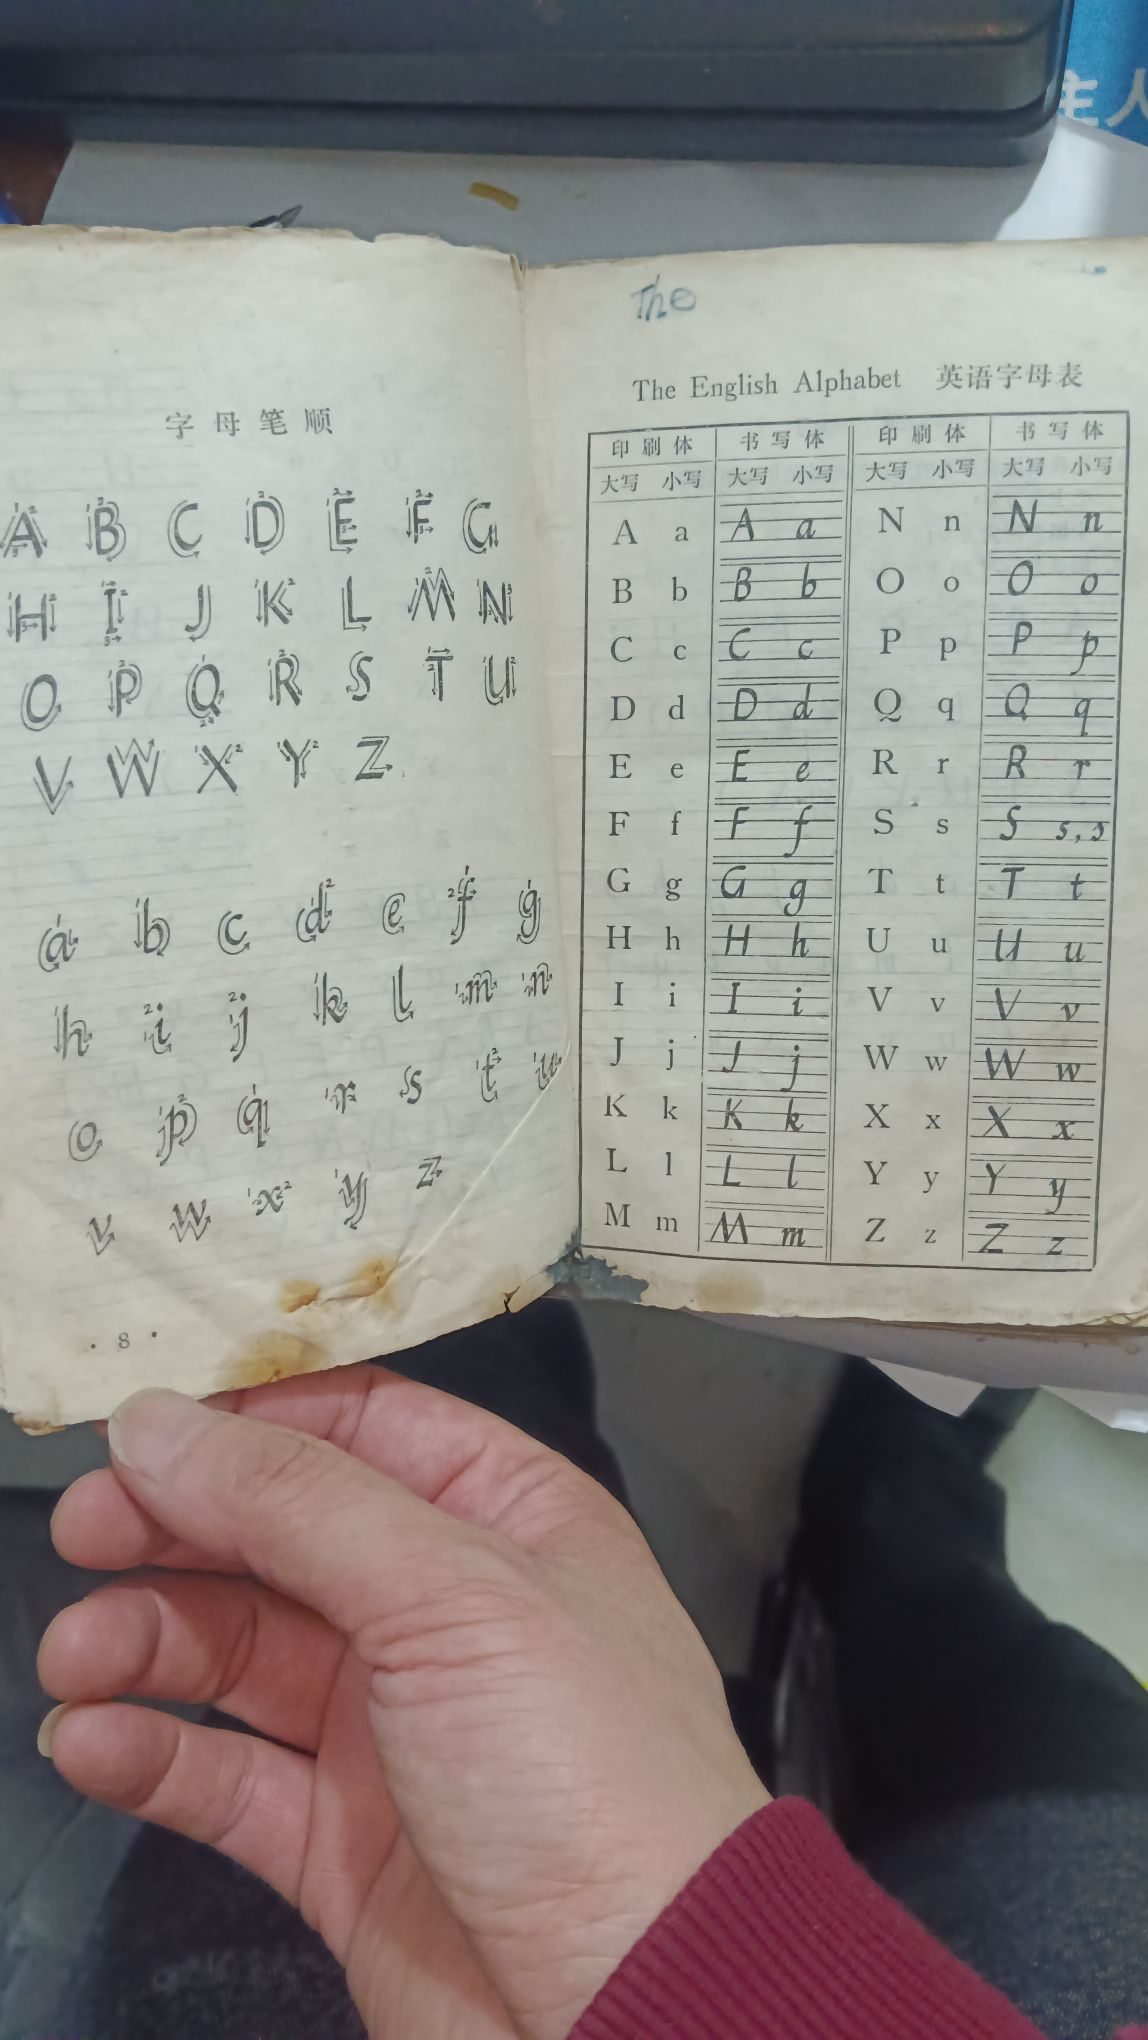 主人
字母笔顺
A B C D E F G
H I J K L M N
O P Q R S T U
V W X Y Z
a b c d e f g
h i j k l m n
o p q r s t u
v w x y z
· 8 ·
The
The English Alphabet 英语字母表
印刷体 书写体 印刷体 书写体
大写 小写 大写 小写 大写 小写 大写 小写
A a A a N n N n
B b B b O o O o
C c C c P p P p
D d D d Q q Q q
E e E e R r R r
F f F f S s S s,s
G g G g T t T t
H h H h U u U u
I i I i V v V v
J j J j W w W w
K k K k X x X x
L l L l Y y Y y
M m M m Z z Z z